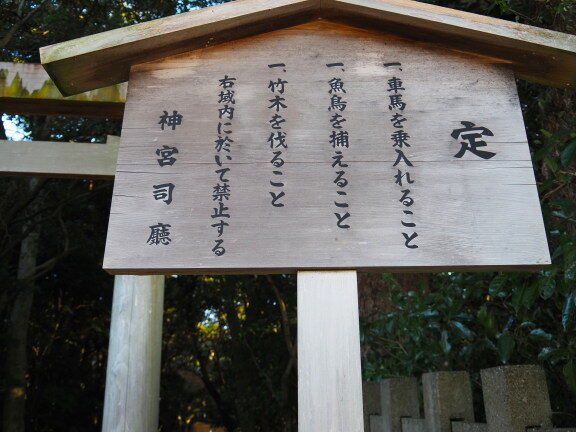 定
一、車馬を乗入れること
一、魚鳥を捕えること
一、竹木を伐ること
右域内に於いて禁止する
神宮司廳